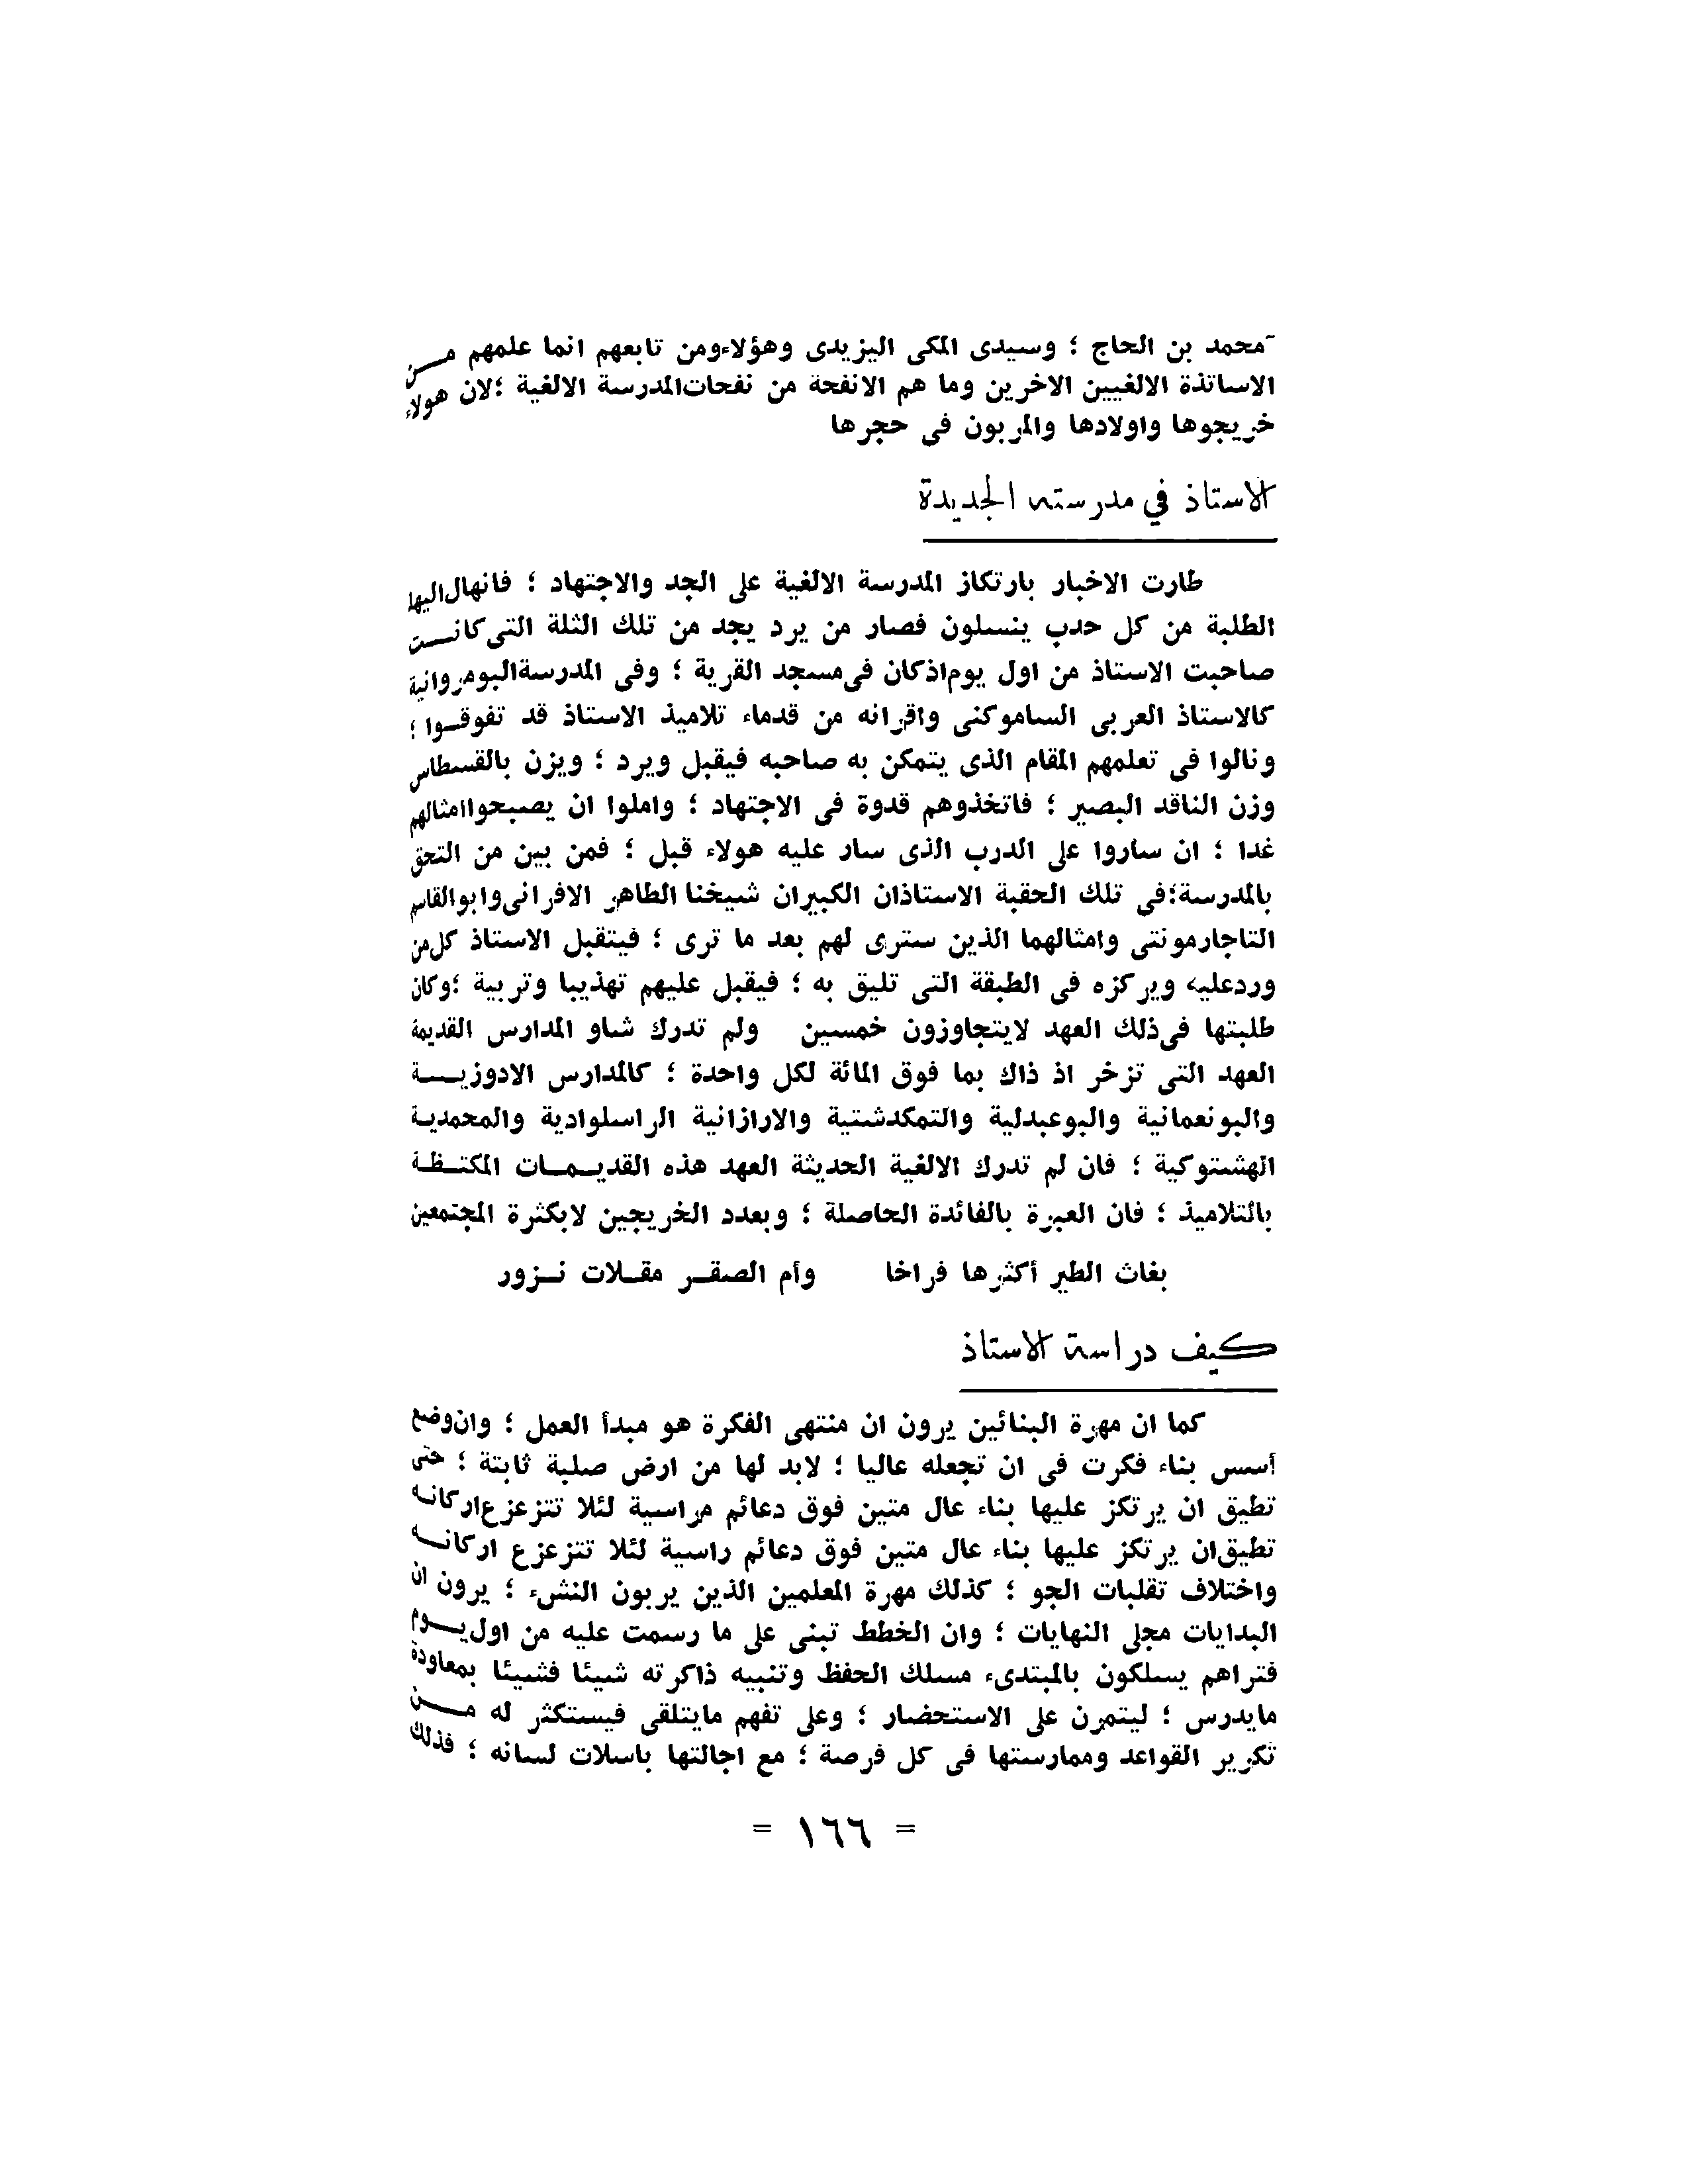 محمد بن الحاج ؛ وسيدى المكى اليزيدى وهؤلاء ومن تابعهم انما علمهم مـــن
الاساتذة الالغيين الاخرين وما هم الانفحة من نفحات المدرسة الالغية ؛ لان هولاء
خريجوها واولادها والمربون فى حجرها
الاستاذ في مدرسته الجديدة
طارت الاخبار بارتكاز المدرسة الالغية على الجد والاجتهاد ؛ فانهال اليها
الطلبة من كل حدب ينسلون فصار من يرد يجد من تلك الثلة التى كانـــت
صاحبت الاستاذ من اول يوم اذ كان فى مسجد القرية ؛ وفى المدرسة البومروانية
كالاستاذ العربى الساموكنى واقرانه من قدماء تلاميذ الاستاذ قد تفوقــوا ؛
ونالوا فى تعلمهم المقام الذى يتمكن به صاحبه فيقبل ويرد ؛ ويزن بالقسطاس
وزن الناقد البصير ؛ فاتخذوهم قدوة فى الاجتهاد ؛ واملوا ان يصبحوا امثالهم
غدا ؛ ان ساروا على الدرب الذى سار عليه هولاء قبل ؛ فمن بين من التحق
بالمدرسة ؛ فى تلك الحقبة الاستاذان الكبيران شيخنا الطاهر الافرانى وابو القاسم
التاجارمونتى وامثالهما الذين سترى لهم بعد ما ترى ؛ فيتقبل الاستاذ كل من
ورد عليه ويركزه فى الطبقة التى تليق به ؛ فيقبل عليهم تهذيبا وتربية ؛ وكان
طلبتها فى ذلك العهد لايتجاوزون خمسين ولم تدرك شاو المدارس القديمة
العهد التى تزخر اذ ذاك بما فوق المائة لكل واحدة ؛ كالمدارس الادوزيـــة
والبونعمانية والبوعبدلية والتمكدشتية والارازانية الراسلوادية والمحمديـة
الهشتوكية ؛ فان لم تدرك الالغية الحديثة العهد هذه القديــمــات المكتــظـة
بالتلاميذ ؛ فان العبرة بالفائدة الحاصلة ؛ وبعدد الخريجين لابكثرة المجتمعين
بغاث الطير أكثرها فراخا وأم الصقــر مقــلات نــزور
كيف دراسة الاستاذ
كما ان مهرة البنائين يرون ان منتهى الفكرة هو مبدأ العمل ؛ وان وضع
أسس بناء فكرت فى ان تجعله عاليا ؛ لابد لها من ارض صلبة ثابتة ؛ حتى
تطيق ان يرتكز عليها بناء عال متين فوق دعائم مراسية لئلا تتزعزع اركانـه
تطيق ان يرتكز عليها بناء عال متين فوق دعائم راسية لئلا تتزعزع اركانــه
واختلاف تقلبات الجو ؛ كذلك مهرة المعلمين الذين يربون النشء ؛ يرون ان
البدايات مجلى النهايات ؛ وان الخطط تبنى على ما رسمت عليه من اول يــوم
فتراهم يسلكون بالمبتدىء مسلك الحفظ وتنبيه ذاكرته شيئا فشيئا بمعاودة
مايدرس ؛ ليتمرن على الاستحضار ؛ وعلى تفهم مايتلقى فيستكثر له مـــن
تكرير القواعد وممارستها فى كل فرصة ؛ مع اجالتها باسلات لسانه ؛ فذلك
= ١٦٦ =